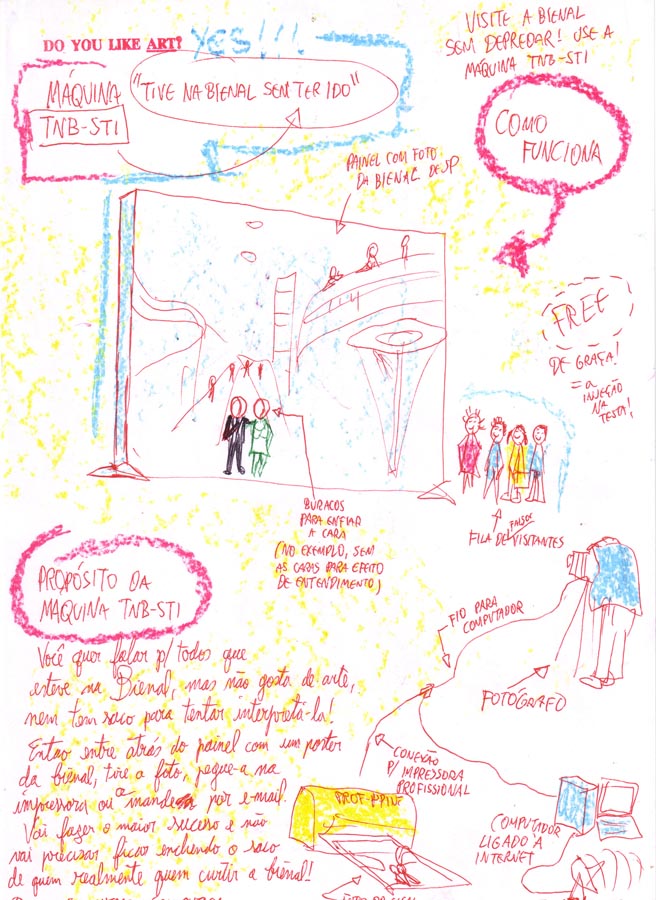 DO YOU LIKE ART? YES!!!
VISITE A BIENAL
SEM DEPREDAR! USE A
MÁQUINA TNB-STI
MÁQUINA
TNB-STI
"TIVE NA BIENAL SEN TER IDO"
COMO
FUNCIONA
PAINEL COM FOTO
DA BIENAL DE SP
FREE
DE GRAÇA!
= a
INJEÇÃO
NA
TESTA!
BURACOS
PARA ENFIAR
A CARA
(NO EXEMPLO, SEM
AS CARAS PARA EFEITO
DE ENTENDIMENTO)
FILA DE FALSOS VISITANTES
PROPÓSITO DA
MAQUINA TNB-STI
FIO PARA
COMPUTADOR
FOTÓGRAFO
Você quer falar p/ todos que
esteve na Bienal, mas não gosta de arte,
nem tem saco para tentar interpretá-la!
Entao entre atrás do painel com um poster
da biênal, tire a foto, pegue-a na
impressora ou a mande por e-mail.
Vai fazer o maior sucesso e não
vai precisar ficar enchendo o saco
de quem realmente quem curtir a biênal!
CONEXÃO
P/ IMPRESSORA
PROFISSIONAL
COMPUTADOR
LIGADO À
INTERNET